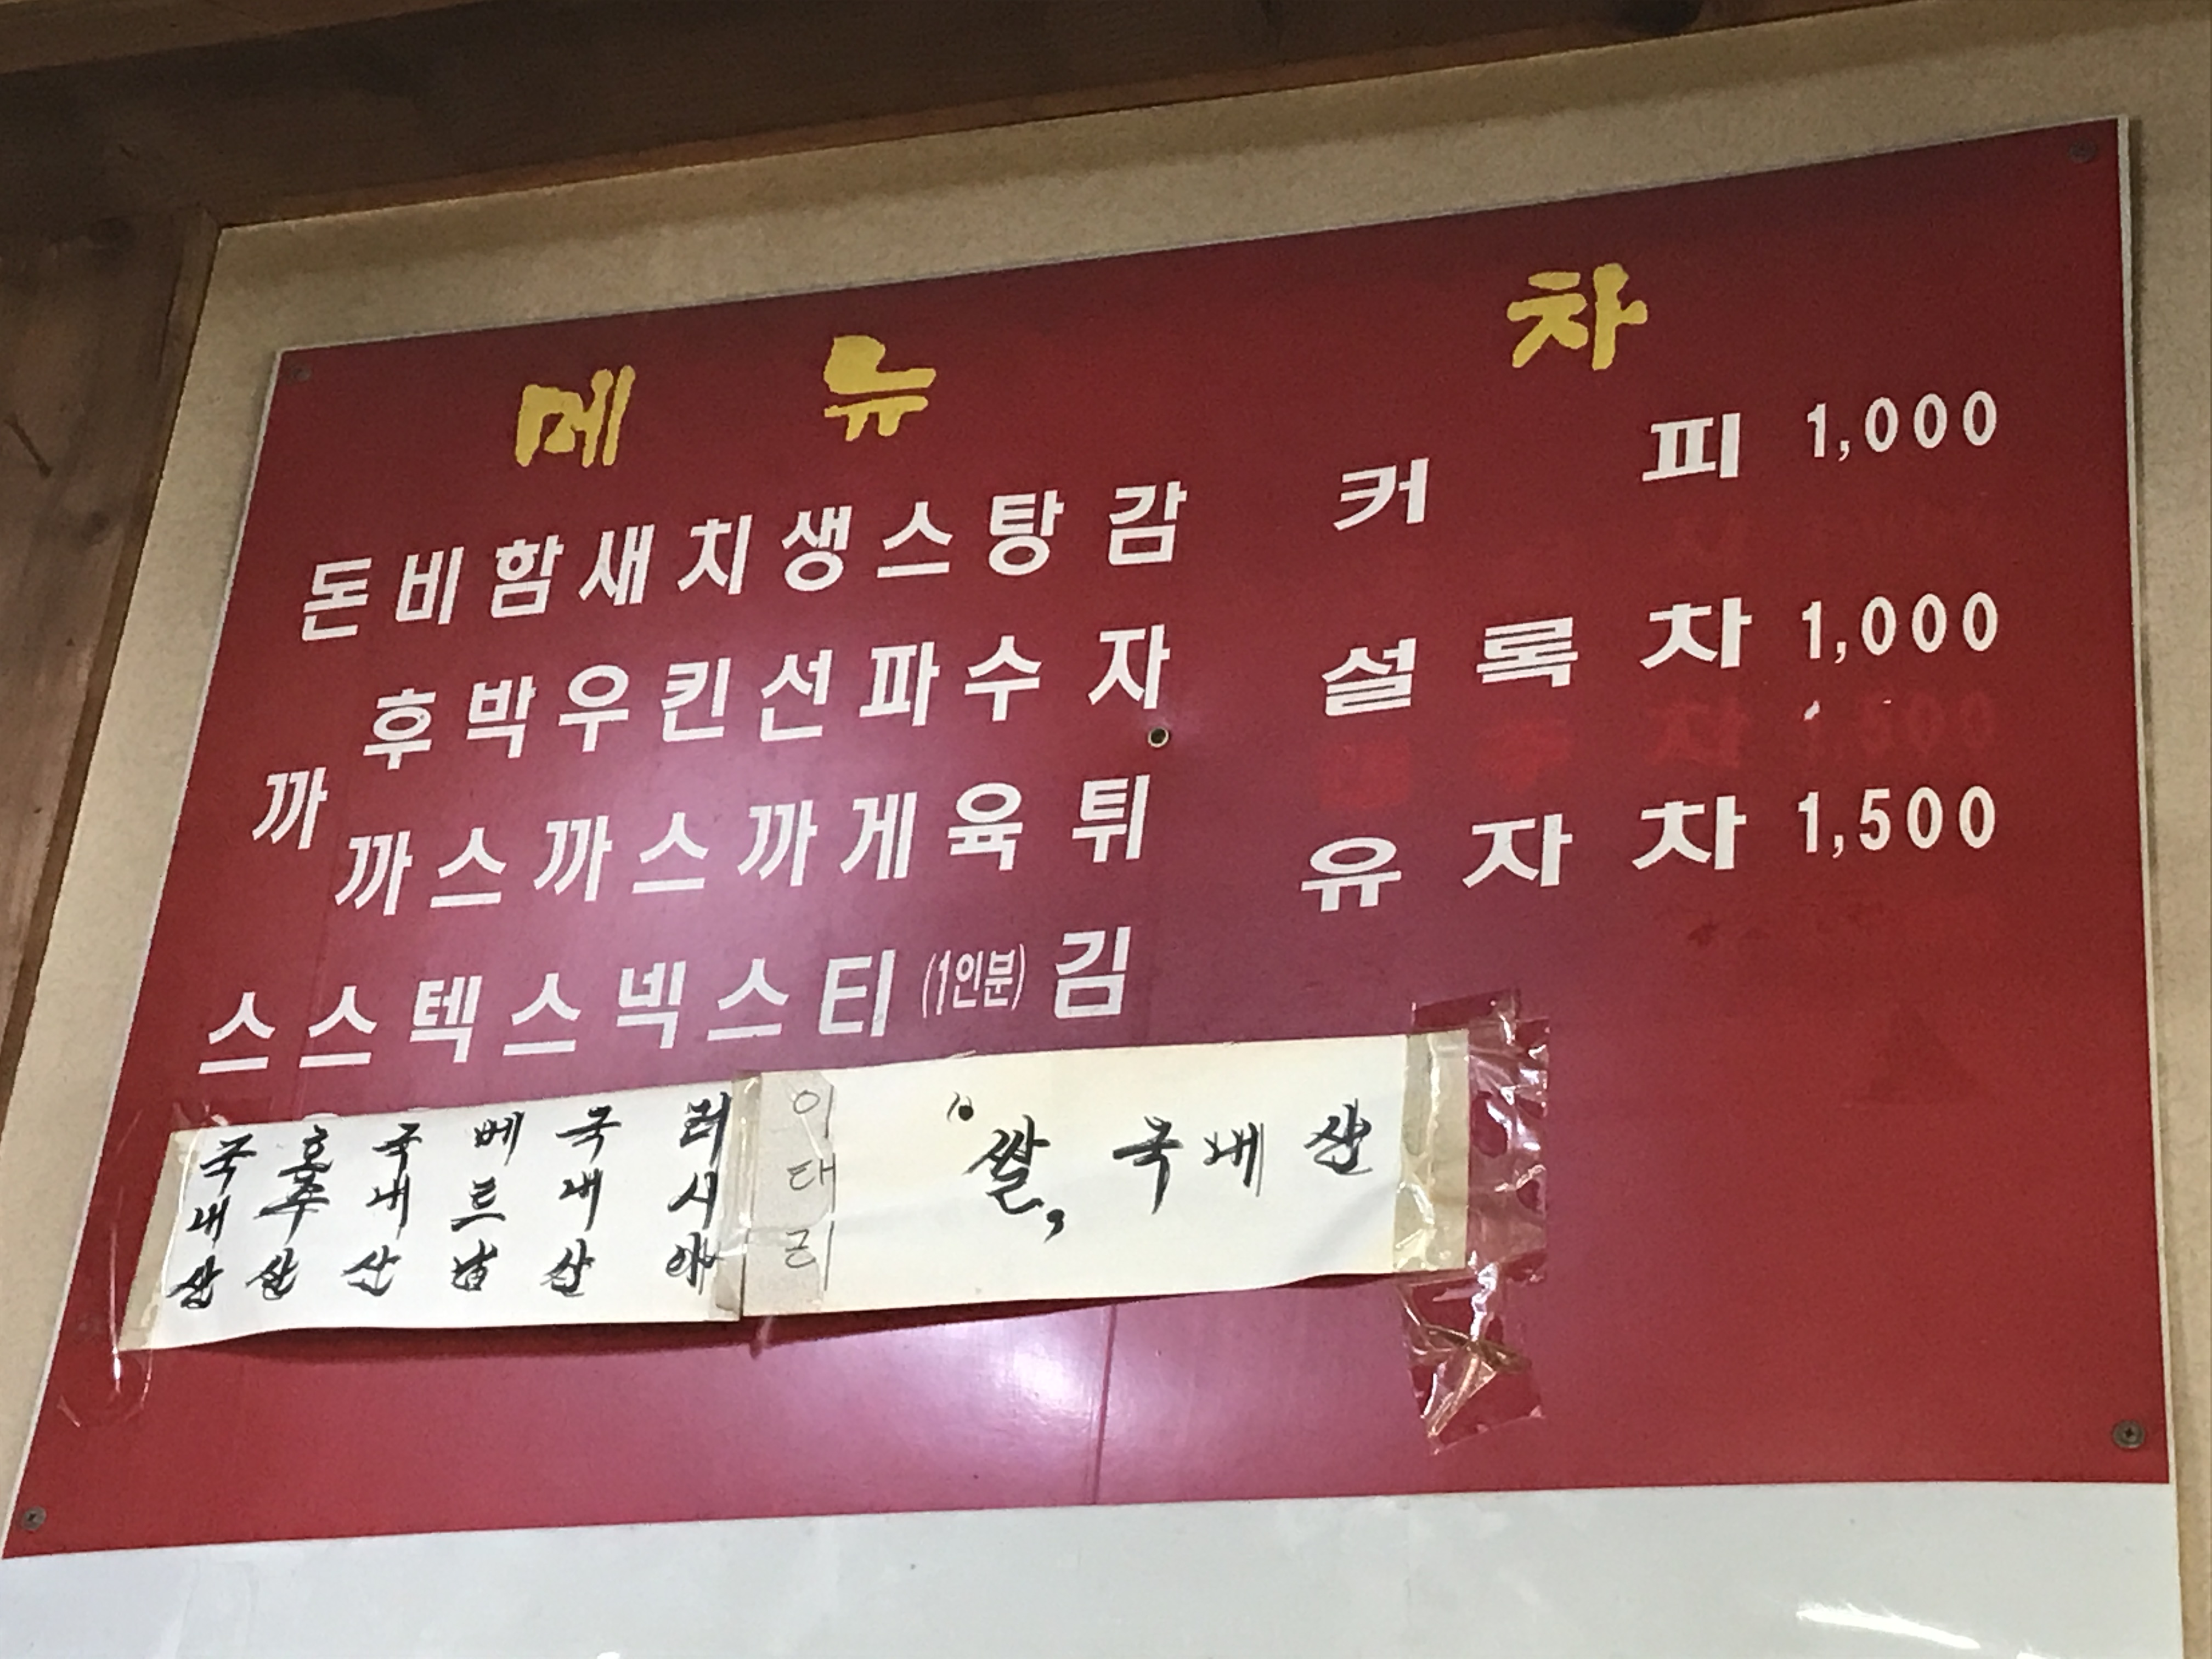 메뉴
돈까스
비후까스
함박스텍
새우까스
치킨스넥
생선까스
스파게티
탕수육(1인분)
감자튀김
국내산
호주산
국내산
베트남
국내산
러시아
이태리
쌀, 국내산
차
커피 1,000
설록차 1,000
유자차 1,500